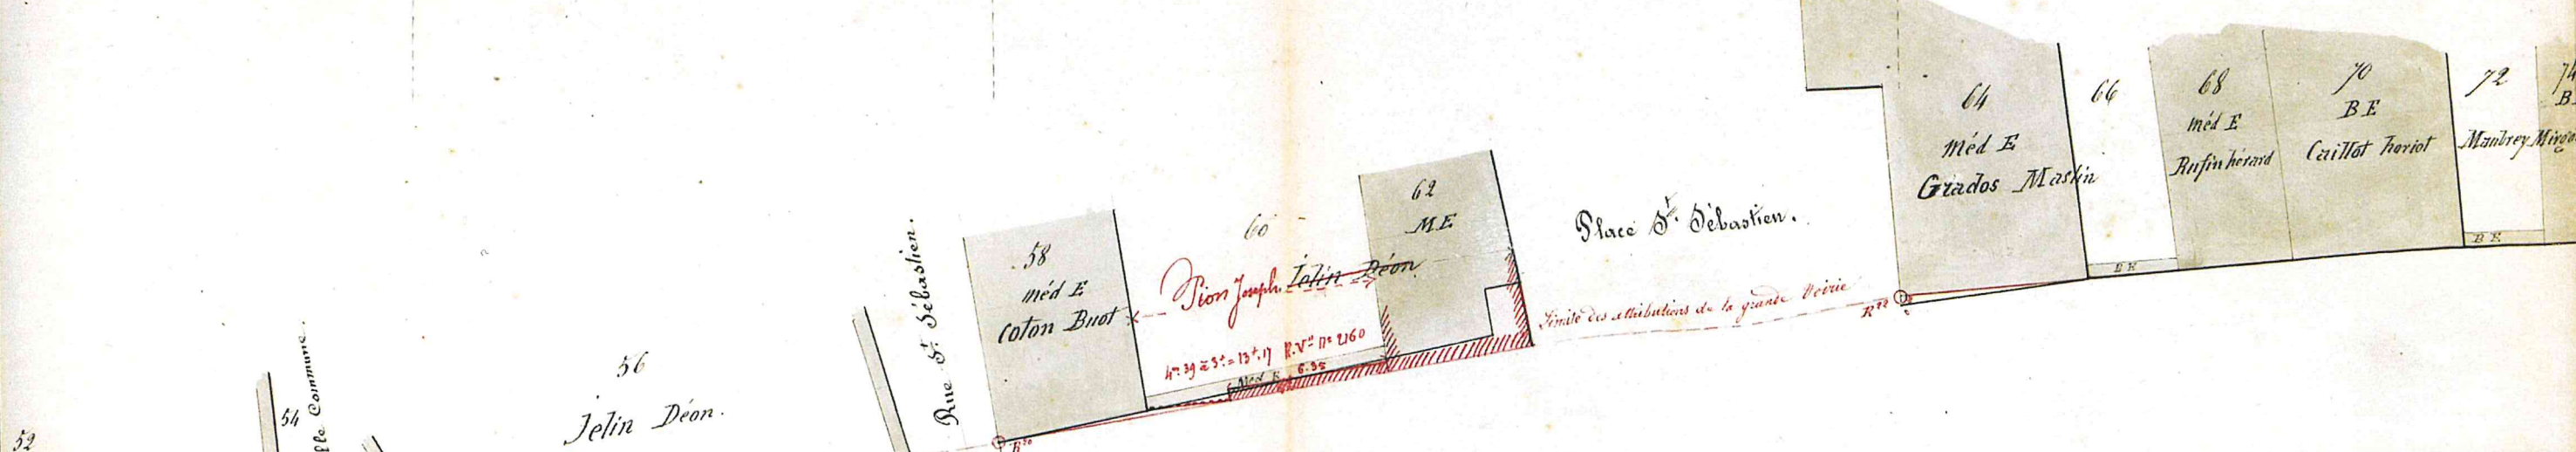 52
54
lle Commune.
56
Jelin Déon.
Rue St. Sébastien.
58
méd E
Coton Buot
60
Pion Joseph. Jelin Déon
4m.39 à 3f = 13f.17 R.Vn no 2160
6.95
Méd E
62
M.E
Place St. Sébastien.
Limite des attributions de la grande Voirie
64
Méd E
Grados Maslin
66
B E
68
méd E
Rufin hérard
70
B E
Caillot horiot
72
Maubrey
B E
74
B